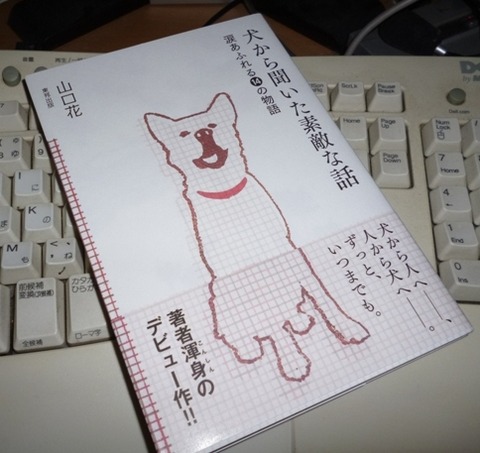 犬から聞いた素敵な話
涙あふれる14の物語
山口花
東邦出版
犬から人へ――、
人から犬へ――。
ずっと、
いつまでも。
著者渾身の
こんしん
デビュー作!!
Num
Lock
Scroll
Lock
Pause
Break
Home
Page
Up
Page
Down
7
Home
4
1
End
0
Ins
に
み
の
も
め
ね
る
K
M
前候補
変換(次候補)
全候補
カタカナ
ひらがな
ローマ字